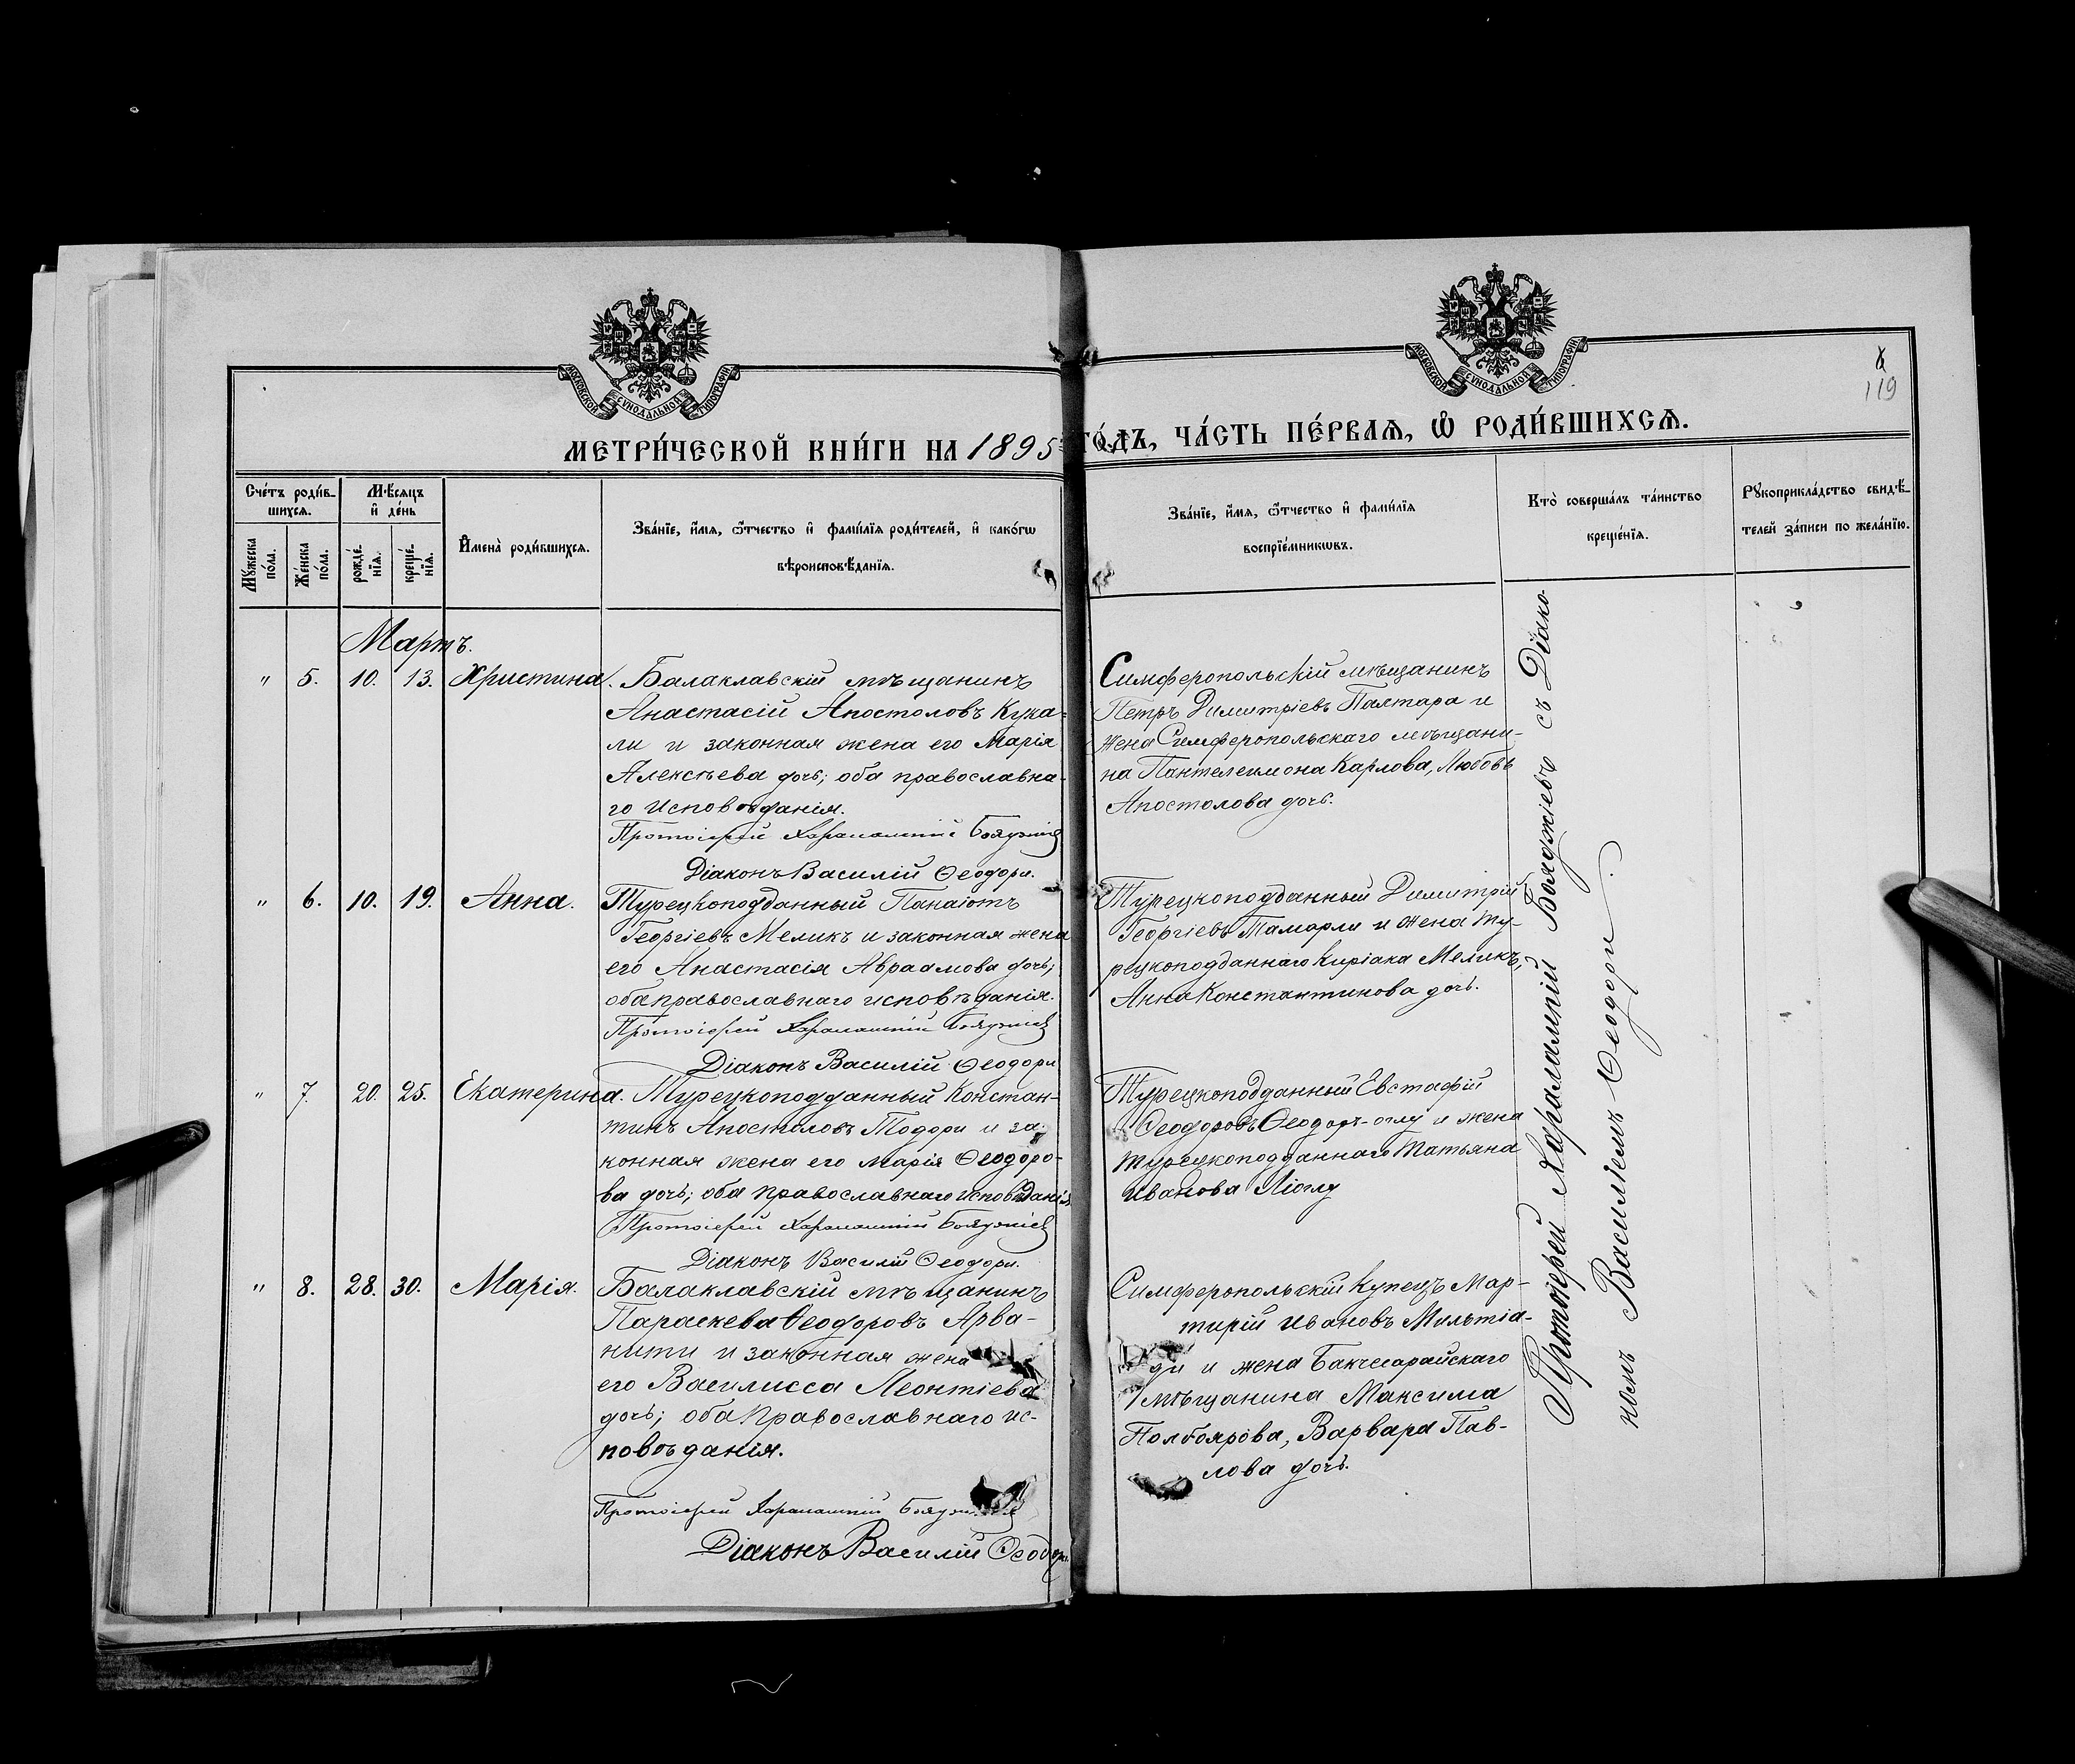 МОСКОВСКОЙ СѴНОДАЛЬНОЙ ТИПОГРАФІИ
МОСКОВСКОЙ СѴНОДАЛЬНОЙ ТИПОГРАФІИ
119
МЕТРИ́ЧЕСКОЙ КНИ́ГИ НА 1895 ГО́ДЪ, ЧА́СТЬ ПЕ́РВАѦ, Ѡ҆ РОДИ́ВШИХСѦ.
Сче́тъ роди́в-
шихсѧ.
Мѣ́сѧцъ
и҆ де́нь
Мꙋ́жеска по́ла.
Же́нска по́ла.
рожде́-
нїѧ.
креще́-
нїѧ.
И҆мена̀ роди́вшихсѧ.
Зва́нїе, и҆́мѧ, ѻ҆́тчество и҆ фами́лїѧ роди́телей, и҆ како́гѡ
вѣроисповѣ́данїѧ.
Зва́нїе, и҆́мѧ, ѻ҆́тчество и҆ фами́лїѧ
воспрїе́мникѡвъ.
Кто̀ соверша́лъ та́инство
креще́нїѧ.
Рꙋкоприкла́дство свидѣ́-
телей за́писи по жела́нїю.
Мартъ.
" 5. 10. 13. Христина. Балаклавскій мѣщанинъ
Анастасій Апостоловъ Кука-
ли и законная жена его Марія
Алексѣева дочь; оба православна-
го исповѣданія.
Протоіерей Харалампій Бояджіев
Діаконъ Василій Ѳеодори.
Симферопольскій мѣщанинъ
Петръ Димитріевъ Палтара и
жена Симферопольскаго мѣщани-
на Пантелеимона Карлова, Любовь
Апостолова дочь.
" 6. 10. 19. Анна. Турецкоподданный Панаіотъ
Георгіевъ Меликъ и законная жена
его Анастасія Авраамова дочь;
оба православнаго исповѣданія.
Протоіерей Харалампій Бояджіев
Діаконъ Василій Ѳеодори
Турецкоподданный Димитрій
Георгіевъ Тамарли и жена ту-
рецкоподданнаго Киріака Меликъ,
Анна Константинова дочь.
" 7. 20. 25. Екатерина. Турецкоподданный Констан-
тинъ Апостоловъ Тодори и за-
конная жена его Марія Ѳеодоро-
ва дочь; оба православнаго исповѣданія
Протоіерей Харалампій Бояджіев
Діаконъ Василій Ѳеодори.
Турецкоподданный Евстафій
Ѳеодоровъ Ѳеодоръ-оглу и жена
турецкоподданнаго Татьяна
Иванова
" 8. 28. 30. Марія. Балаклавскій мѣщанинъ
Параскева Ѳеодоровъ Арва-
нити и законная жена
его Василисса Леонтіева
дочь; оба православнаго ис-
повѣданія.
Протоіерей Харалампій
Діаконъ Василій Ѳеодори
Симферопольскій купецъ Мар-
тирій Ивановъ Мильтіа-
ди и жена Бакчесарайскаго
мѣщанина Максима
Полбоярова, Варвара Пав-
лова дочь.
Протоіерей Харалампій Бояджіевъ съ Діако-
номъ Василіемъ Ѳеодори.